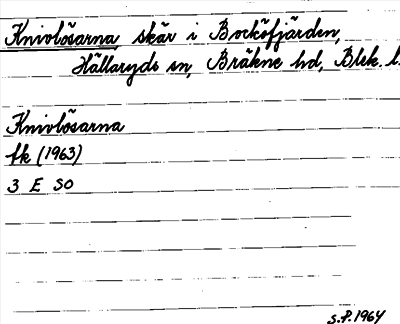 Knivlösarna skär i Bocköfjärden,
Hällaryds sn, Bräkne hd, Blek. l.
Knivlösarna
fk (1963)
3 E SO
S.P. 1964